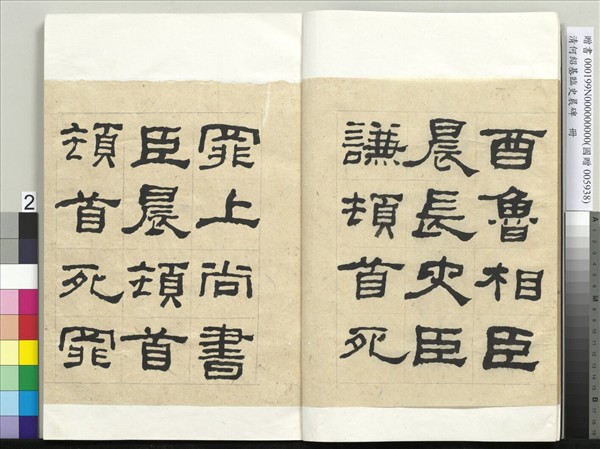 酉魯相臣
晨長史臣
謙頓首死
罪上尚書
臣晨頓首
頓首死罪
贈書 000199N000000000(國贈 005938)
清何紹基臨史晨碑 冊
2
A
M
B